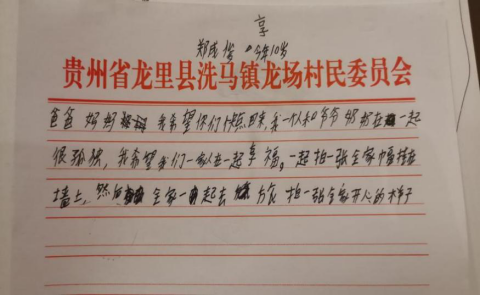 享
郑成俊 今年10岁
贵州省龙里县洗马镇龙场村民委员会
爸爸 妈妈 我希望你们快回来,我一个人和爷爷奶奶在一起
很孤独,我希望我们一家人在一起享福。一起拍一张全家福挂在
墙上,然后 全家一起去 旅 拍一张全家开心的样子